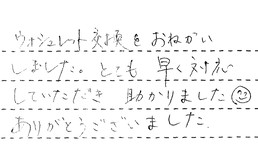 ウォシュレット交換をおねがい
しました。とても 早く対応
していただき 助かりました
ありがとうございました。